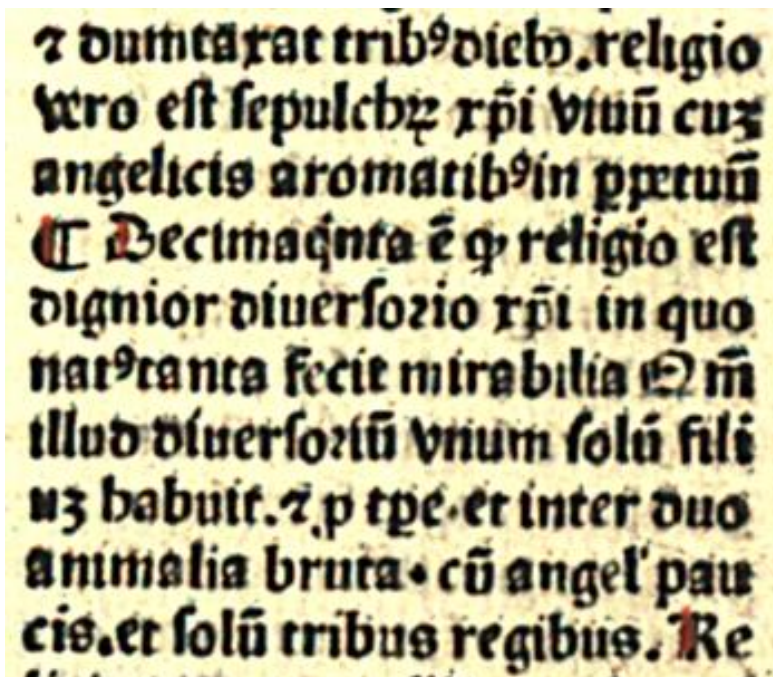 ⁊ dumtaxat tribꝰ dieb⁹. religio
vero est sepulchrꝫ xp̄i viuū cuꝫ
angelicis aromatibꝰ in ꝑpetuū
¶ Decimaq̇nta ē ꝙ religio est
dignior diuersorio xp̄i in quo
natꝰ tanta fecit mirabilia Nā
illud diuersoriū vnum solū fili
uꝫ habuit. ⁊ ꝓ tꝑe. et inter duo
animalia bruta. cū angel' pau
cis. et solū tribus regibus. Re